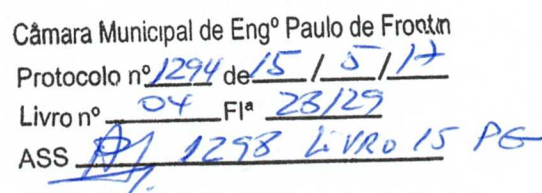 Câmara Municipal de Engº Paulo de Frontin
Protocolo nº 1294 de 15 / 5 / 17
Livro nº 04 Flª 28/29
ASS 1298 LiVRO 15 PG